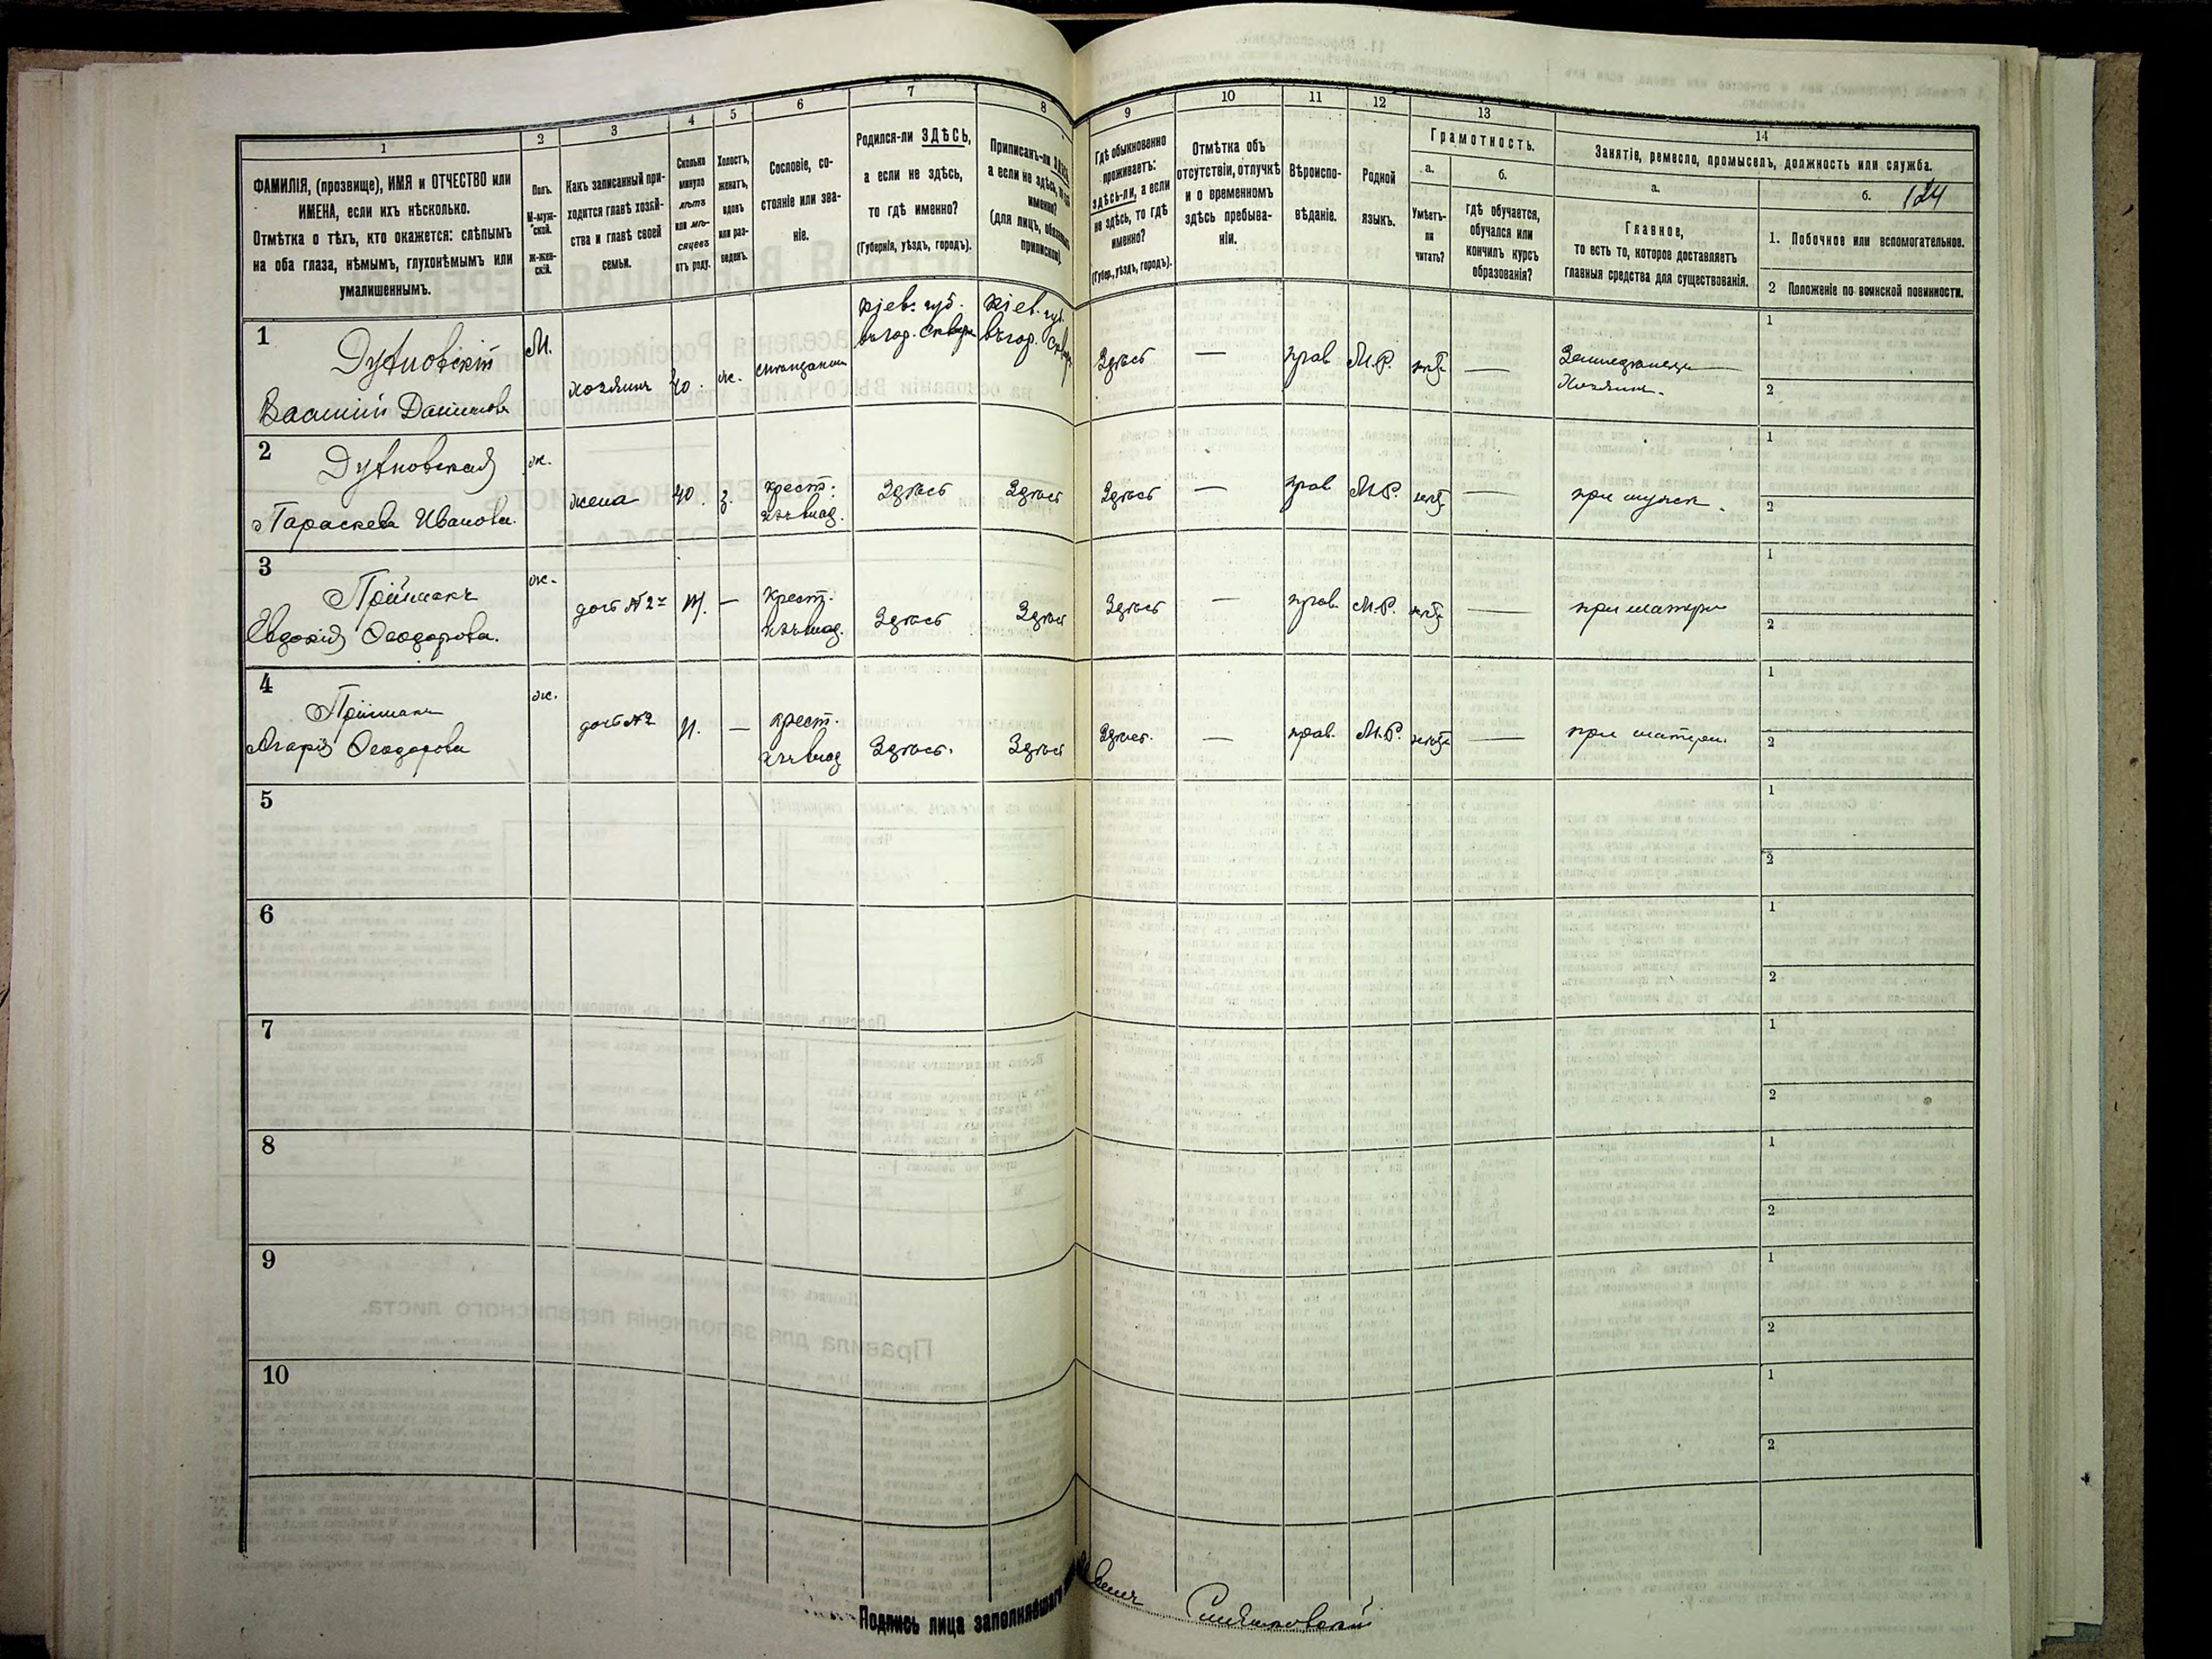 1 2 3 4 5 6 7 8 9 10 11 12 13 14
ФАМИЛІЯ, (прозвище), ИМЯ и ОТЧЕСТВО или
ИМЕНА, если ихъ нѣсколько.
Отмѣтка о тѣхъ, кто окажется: слѣпымъ
на оба глаза, нѣмымъ, глухонѣмымъ или
умалишеннымъ.
Полъ.
М-муж-
ской.
ж-жен-
скій.
Какъ записанный при-
ходится главѣ хозяй-
ства и главѣ своей
семьи.
Сколько
минуло
лѣтъ
или мѣ-
сяцевъ
отъ роду.
Холостъ,
женатъ,
вдовъ
или раз-
веденъ.
Сословіе, со-
стояніе или зва-
ніе.
Родился-ли ЗДѢСЬ,
а если не здѣсь,
то гдѣ именно?
(Губернія, уѣздъ, городъ).
Приписанъ-ли ЗДѢСЬ,
а если не здѣсь, то гдѣ
именно?
(для лицъ, обязанныхъ
припиской).
Гдѣ обыкновенно
проживаетъ:
здѣсь-ли, а если
не здѣсь, то гдѣ
именно?
(Губер., уѣздъ, городъ).
Отмѣтка объ
отсутствіи, отлучкѣ
и о временномъ
здѣсь пребыва-
ніи.
Вѣроиспо-
вѣданіе.
Родной
языкъ.
Грамотность.
а.
Умѣетъ-
ли
читать?
б.
гдѣ обучается,
обучался или
кончилъ курсъ
образованія?
Занятіе, ремесло, промыселъ, должность или служба.
а.
Главное,
то есть то, которое доставляетъ
главныя средства для существованія.
б. 124
1. Побочное или вспомогательное.
2 Положеніе по воинской повинности.
1
Василій М. хозяинъ 40. ж.
Кіев. губ.
въ гор. Сквирѣ
Кіев. губ.
въ гор.
Здѣсь — прав М.Р. нѣтъ —
Хозяинъ.
1
2
2
Параскева Иванова. ж. жена 40. з. крест. Здѣсь Здѣсь Здѣсь — прав М.Р. нѣтъ — при мужѣ.
1
2
3
Пріймакъ
Евдокія Ѳеодорова. ж. доч №2 — Крест. Здѣсь Здѣсь Здѣсь — прав. М.Р. нѣтъ — при матери
1
2
4
Пріймакъ
Ѳеодорова ж. доч №2 — крест. Здѣсь. Здѣсь Здѣсь. — прав. М.Р. нѣтъ — при матери.
1
2
5
1
2
6
1
2
7
1
2
8
1
2
9
1
2
10
1
2
Подпись лица заполнявшаго